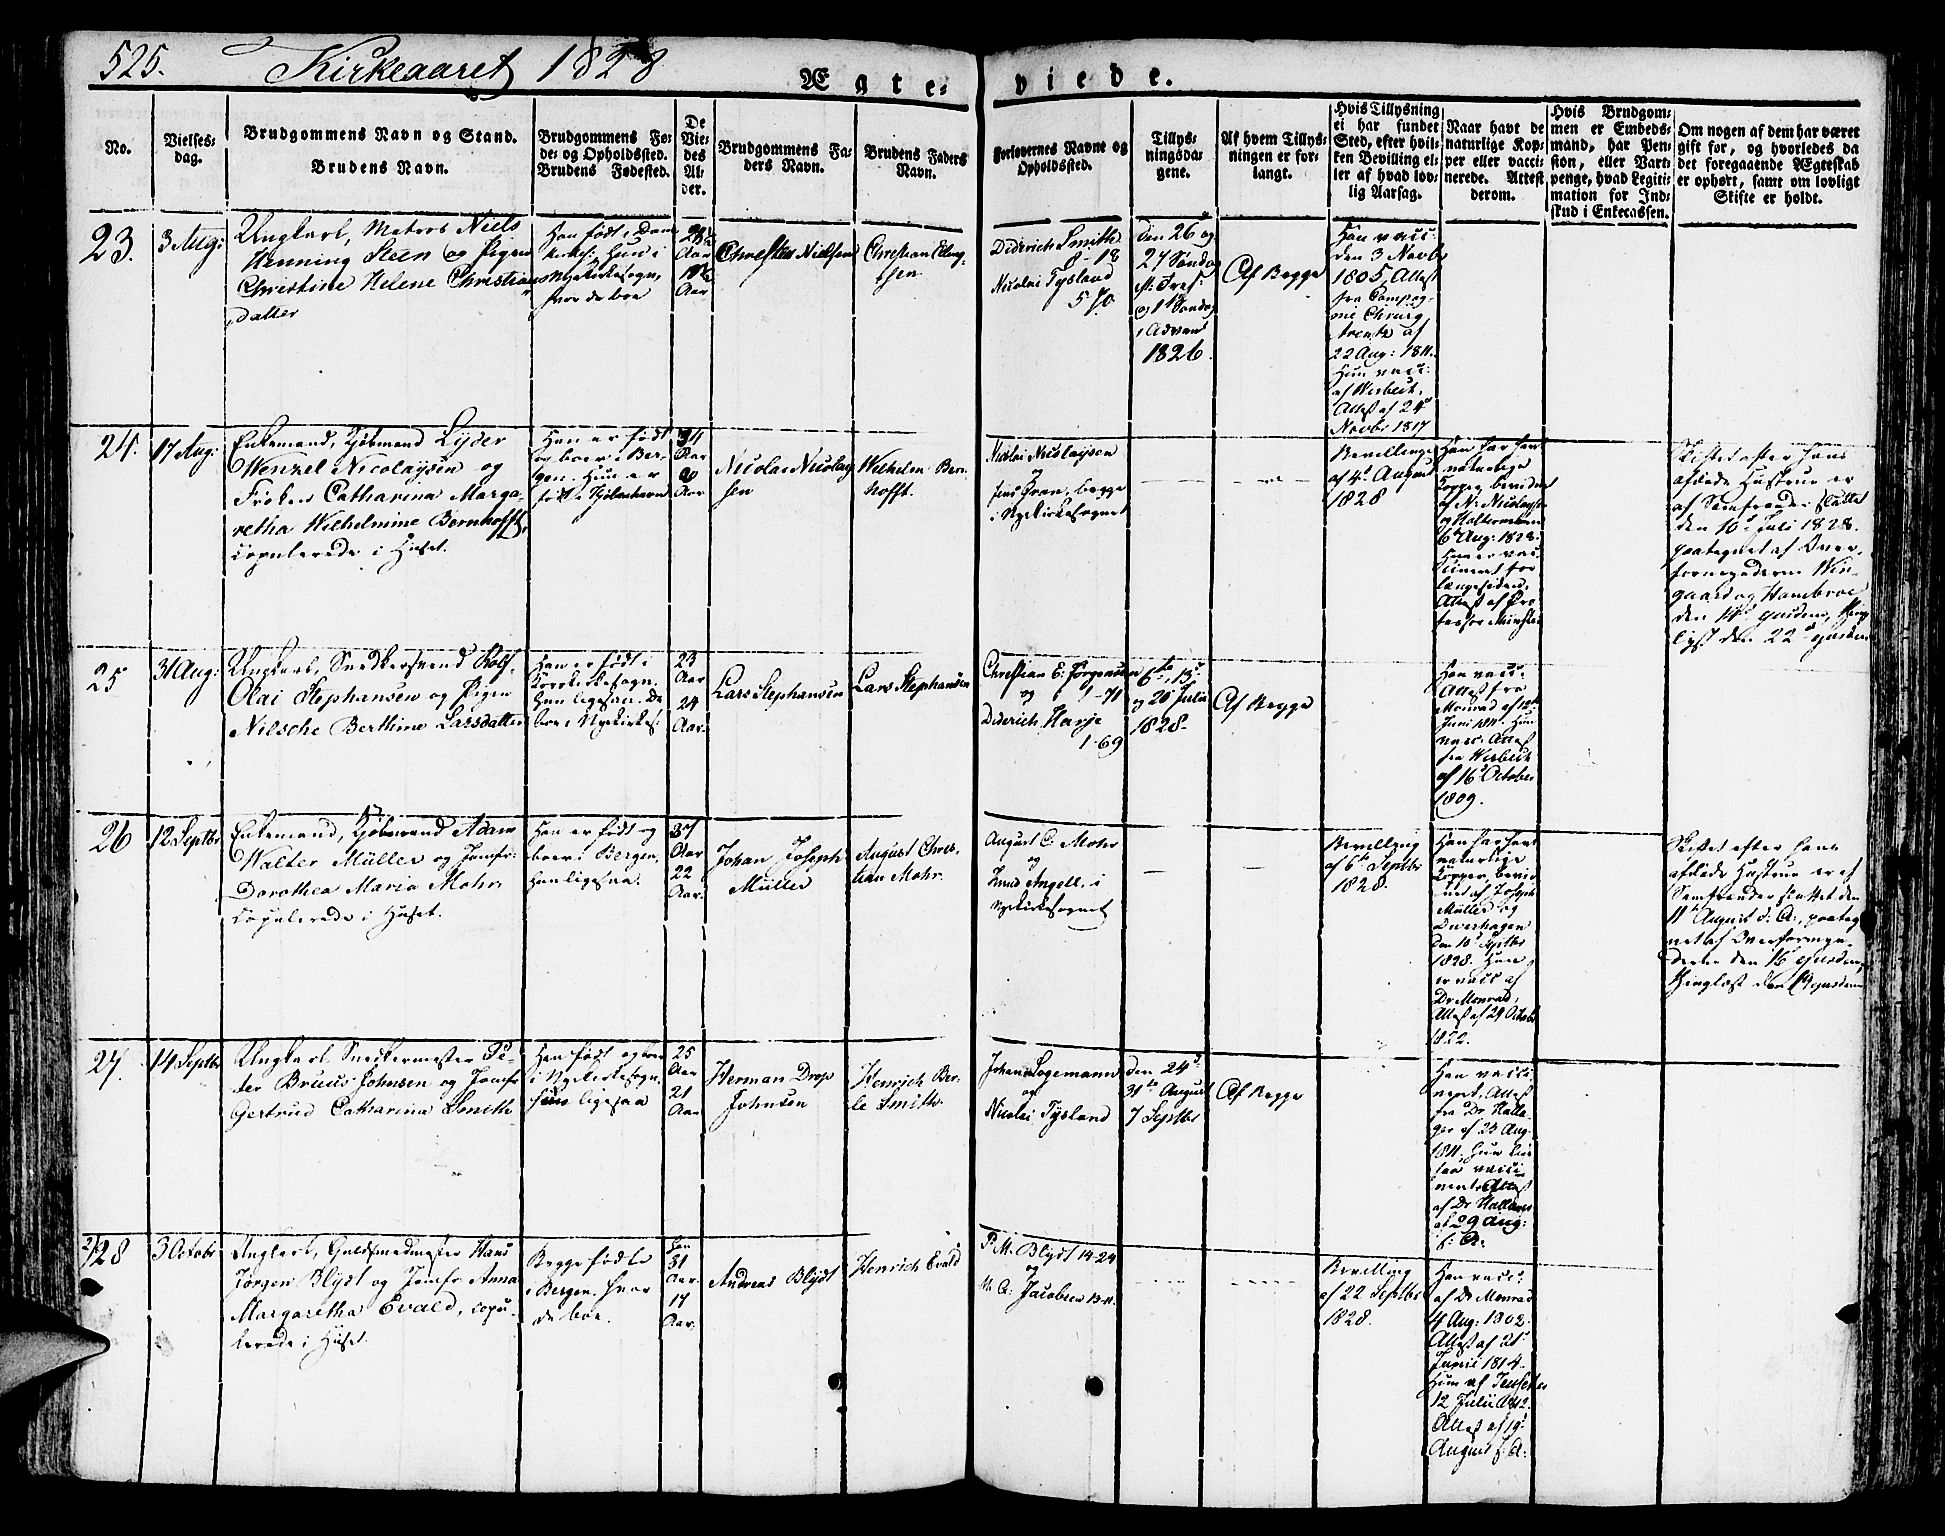 525. Kirkeaaret 1828
Ægte- viede.
No.
Vielses-
dag.
Brudgommens Navn og Stand.
Brudens Navn.
Brudgommens Fø-
de- og Opholdssted.
Brudens Fødested.
De
Vie-
des
Al-
der.
Brudgommens Fa-
ders Navn.
Brudens Faders
Navn.
Forlovernes Navne og
Opholdssted.
Tillys-
ningsda-
gene.
Af hvem Tillys-
ningen er for-
langt.
Hvis Tillysning
ei har fundet
Sted, efter hvil-
ken Bevilling el-
ler af hvad lov-
lig Aarsag.
Naar havt de
naturlige Kop-
per eller vacci-
nerede. Attest
derom.
Hvis Brudgom-
men er Embeds-
mand, har Pen-
sion, eller Vart-
penge, hvad Legiti-
mation for Ind-
skud i Enkecassen.
Om nogen af dem har været
gift før, og hvorledes da
det foregaaende Ægteskab
er ophørt, samt om lovligt
Skifte er holdt.
23.
3 Aug:
Ungkarl, Matros Niels
Henning Steen og Pigen
Christine Helene Christian
datter
Han født i Dom
kirks: Hun i
Nykirkesogn,
hvor de boe
Aar
Aar
Christen Nielsen
Christian Eleng-
sen
Diderich Smith
8-18
Nicolai Tysland
5 70
den 26 og
27 Søndag
e. Tref:
og 1 Søndag
i Advent
1826.
Af Begge
Han vacc:
den 3 Novbr
1805, Attest
fra Compag-
ni Chirurg
af
22 Aug: 1811.
Hun vacc:
af Wisbech,
Attest af 24d
Novbr 1817
24.
17 Aug:
Enkemand, Kjøbmand Lyder
Wenzel Nicolaysen og
Frøken Catharina Marga-
retha Wilhelmine Bornhofft,
copulerede i Huset.
Han er født
og boer i Ber-
gen. Hun er
født i Kjøbenhavn
34
Aar
Aar
Nicolai Nicolay
sen
Wilhelm Born
hofft.
Nicolai Nicolaysen
og
Jens Gran, begge
i Nykirkesognet
Bevillinge
af 4d August
1828
Han har havt
naturlige
Kopper, bevidnet
af N: Nicolaysen
og Holtermann
6t Aug: 1828.
Hun er vac-
cineret for
længesiden,
Attest af Pro
fessor Münster
Skiftet efter hans
afdøde Hustrue er
af Samfrænder sluttet
den 10d Juli 1828.
paategnet af Over-
formynderne Win-
gaard og Hambroe
den 14d ejusdem, thing-
lyst den 22d ejusdem
25
31 Aug:
Ungkarl, Snedkersvend Rolf
Olai Stephansen og Pigen
Nilsche Berthine Larsdatter
Han er født i
Korskirkesogn,
Hun ligesaa. De
boe i Nykirkes:
23
Aar
24
Aar.
Lars Stephansen
Lars Stephansen
Christian E. Jørgensen
1-71
og
Diderich Harje
1-69
6te, 13d
og 20d Julii
1828.
Af Begge
Han vacc:
Attest fra
Monrad af 12te
Juni 1811. Hun
vacc: Attest
fra Wisbech
af 16d October
1809.
26
12 Septbr
Enkemand, Kjøbmand Adam
Walter Müller og Jomfr:
Dorothea Maria Mohr,
copulerede i Huset.
Han er født og
boer i Bergen,
Hun ligesaa.
37
Aar
22
Aar.
Johan Joseph
Müller
August Chris-
tian Mohr.
August C. Mohr
og
Knud Angell, i
Nykirkesognet
Bevilling
af 6te Septbr
1828.
Han har havt
naturlige
Kopper, bevid-
net af Joseph
Müller og
Dverhagen
den 10d Septbr
1828. Hun
er vacc: af
Dr Monrad,
Attest af 29 Octobr
1822.
Skiftet efter hans
afdøde Hustrue er af
Samfrænder sluttet den
11te August d. A:, paateg
net af Overformyn-
derne den 16d ejusdem,
thinglæst den 19 ejusdem
27.
14 Septbr
Ungkarl Snedkermester Pe-
ter Bruus Johnsen og Jomfr
Gertrud Catharina Smith
Han født og boer
i Nykirkesogn,
Hun ligesaa
25
Aar
21
Aar.
Herman Drop
Johnsen
Henrich Ber-
le Smith.
Johan Logemann
og
Nicolai Tysland
den 24d
31te August
7 Septbr
Af Begge
Han vacci-
neret, Attest
fra Dr Halla-
ger af 23 Aug.
1811. Hun lige
saa vacci-
neret, Attest
af Dr Hallager
af 29 Aug:
s: A:
28
3 Octobr
Ungkarl, Guldsmedmester Hans
Jørgen Blydt og Jomfr: Anna
Margaretha Evald, copu-
lerede i Huset.
Begge fødte
i Bergen, hvor
de boe.
Han
31
Aar.
17
Aar.
Andreas Blydt
Henrich Evald
P. M. Blydt 14-24
og
M. A: Jacobsen 13-11.
Bevilling
af 22 Septbr
1828.
Han vacc:
af Dr Monrad
4 Aug: 1802.
Attest af 21d
Junii 1814.
Hun af
12 Julii 1812.
Attest af 19d
August s: A: